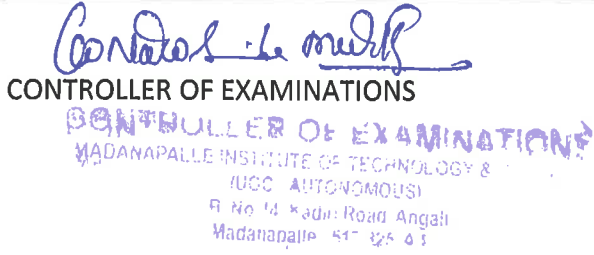 CONTROLLER OF EXAMINATIONS
CONTROLLER OF EXAMINATIONS
MADANAPALLE INSTITUTE OF TECHNOLOGY &
(UGC AUTONOMOUS)
P. No 14 Kadiri Road Angall
Madanapalle 517 325 A.P